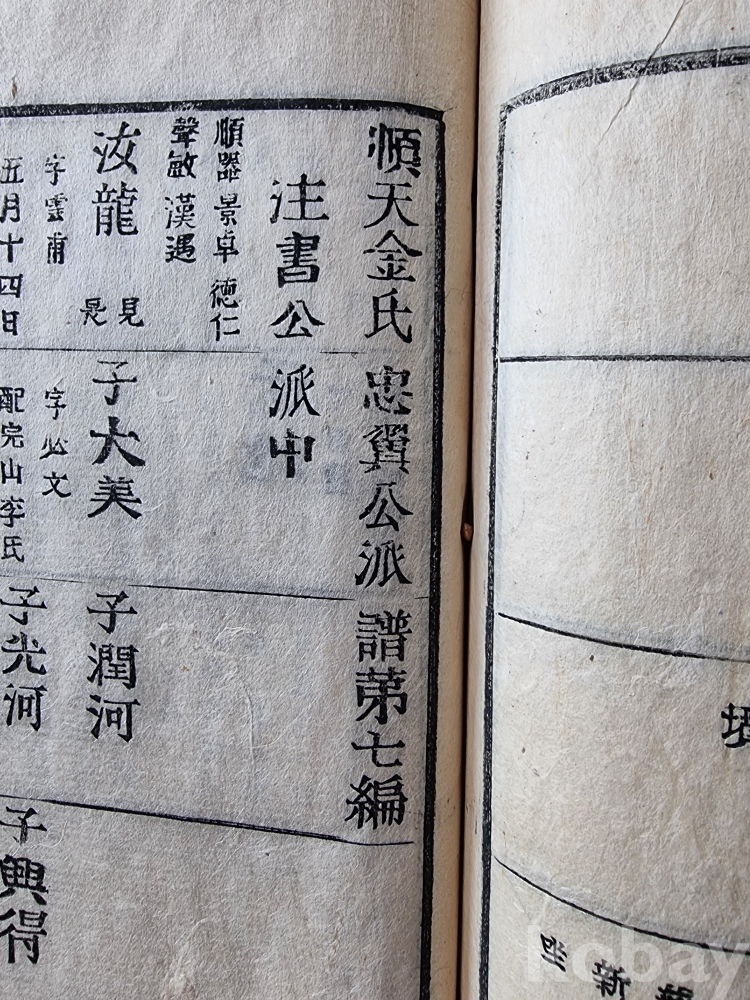 順天金氏忠翼公派譜苐七編
注書公派中
順器 景卓 德仁
聲敏 漢遇
汝龍 見
是
字雲甫
五月十四日
子大美
字必文
配完山李氏
子潤河
子光河
子興得
新
坐
kobay